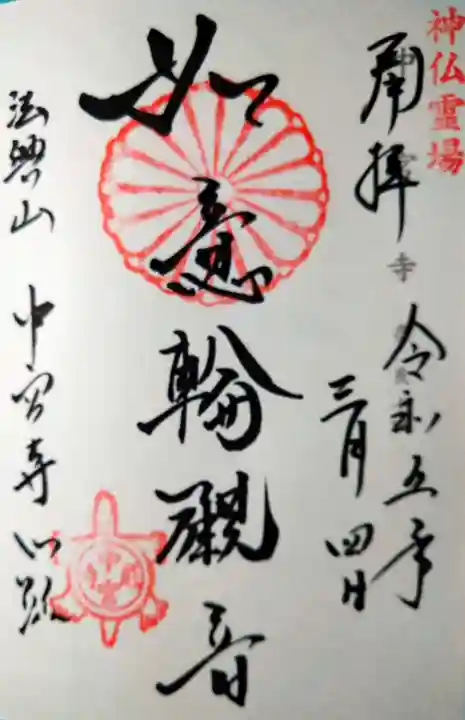 神仏霊場
奉拝
令和五年
三月四日
如意輪観音
法興山 中宮寺